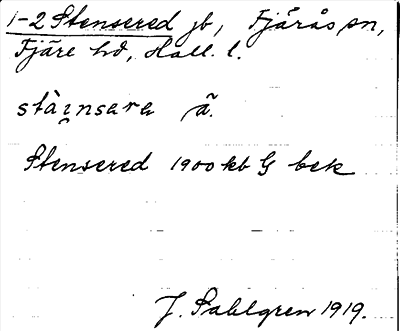 1-2 Stensered jb, Fjärås sn,
Fjäre hd, Hall. l.
stàinsara ã.
Stensered 1900 kb G bek
J. Sahlgren 1919.